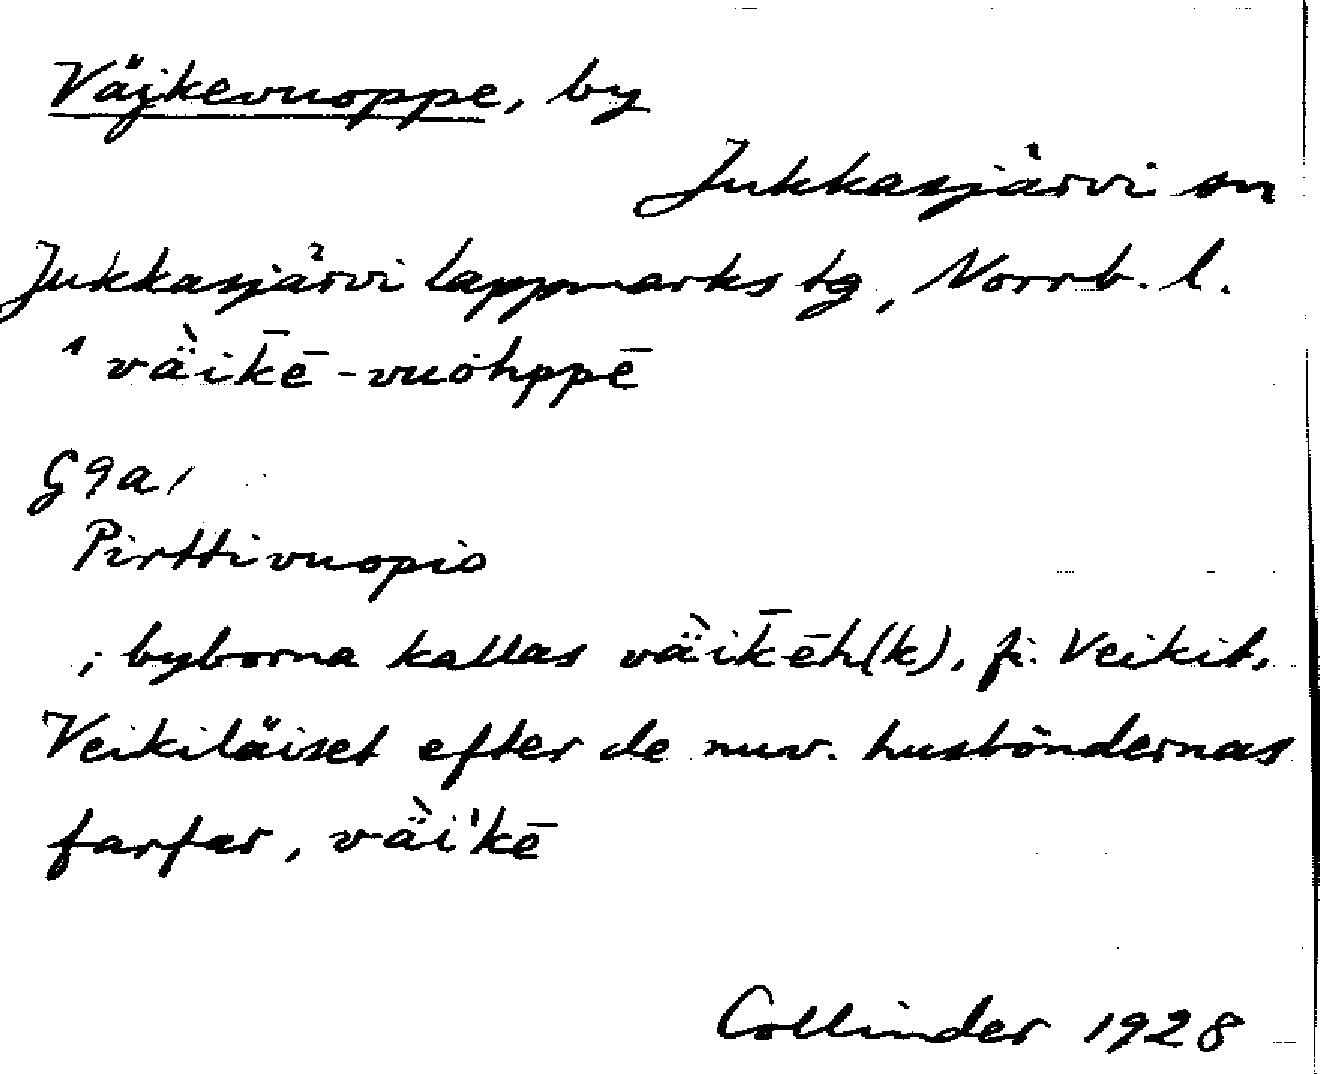 Väjkevuoppe, by
Jukkasjärvi sn
Jukkasjärvi lappmarks tg, Norrb. l.
¹ vä̀ik̄ē-vuohppē
G9a,
Pirttivuopio
; byborna kallas vä̀ik̄ēh(k), fi. Veikit,
Veikiläiset efter de nuv. husböndernas
farfar, vä̀i'kē
Collinder 1928